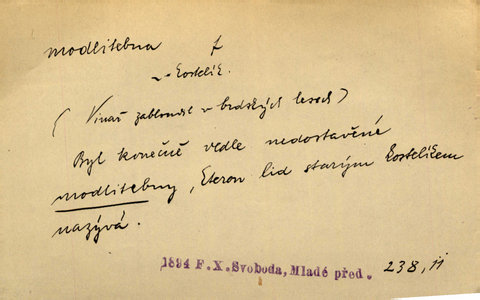 modlitebna f
kostelík.
(Vinař zabloudil v brdských lesech)
Byl konečně vedle nedostavěné
modlitebny, kterou lid starým kostelíčkem
nazývá.
1894 F.X.Svoboda, Mladé před. 238, 11